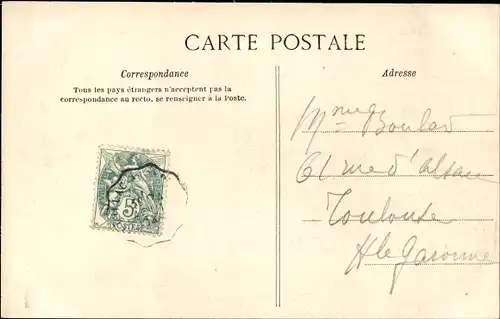 CARTE POSTALE
Correspondance
Tous les pays étrangers n'acceptent pas la
correspondance au recto, se renseigner à la Poste.
Adresse
Mme Boulad
61 rue d'alsau
Toulouse
Hte Garonne
5